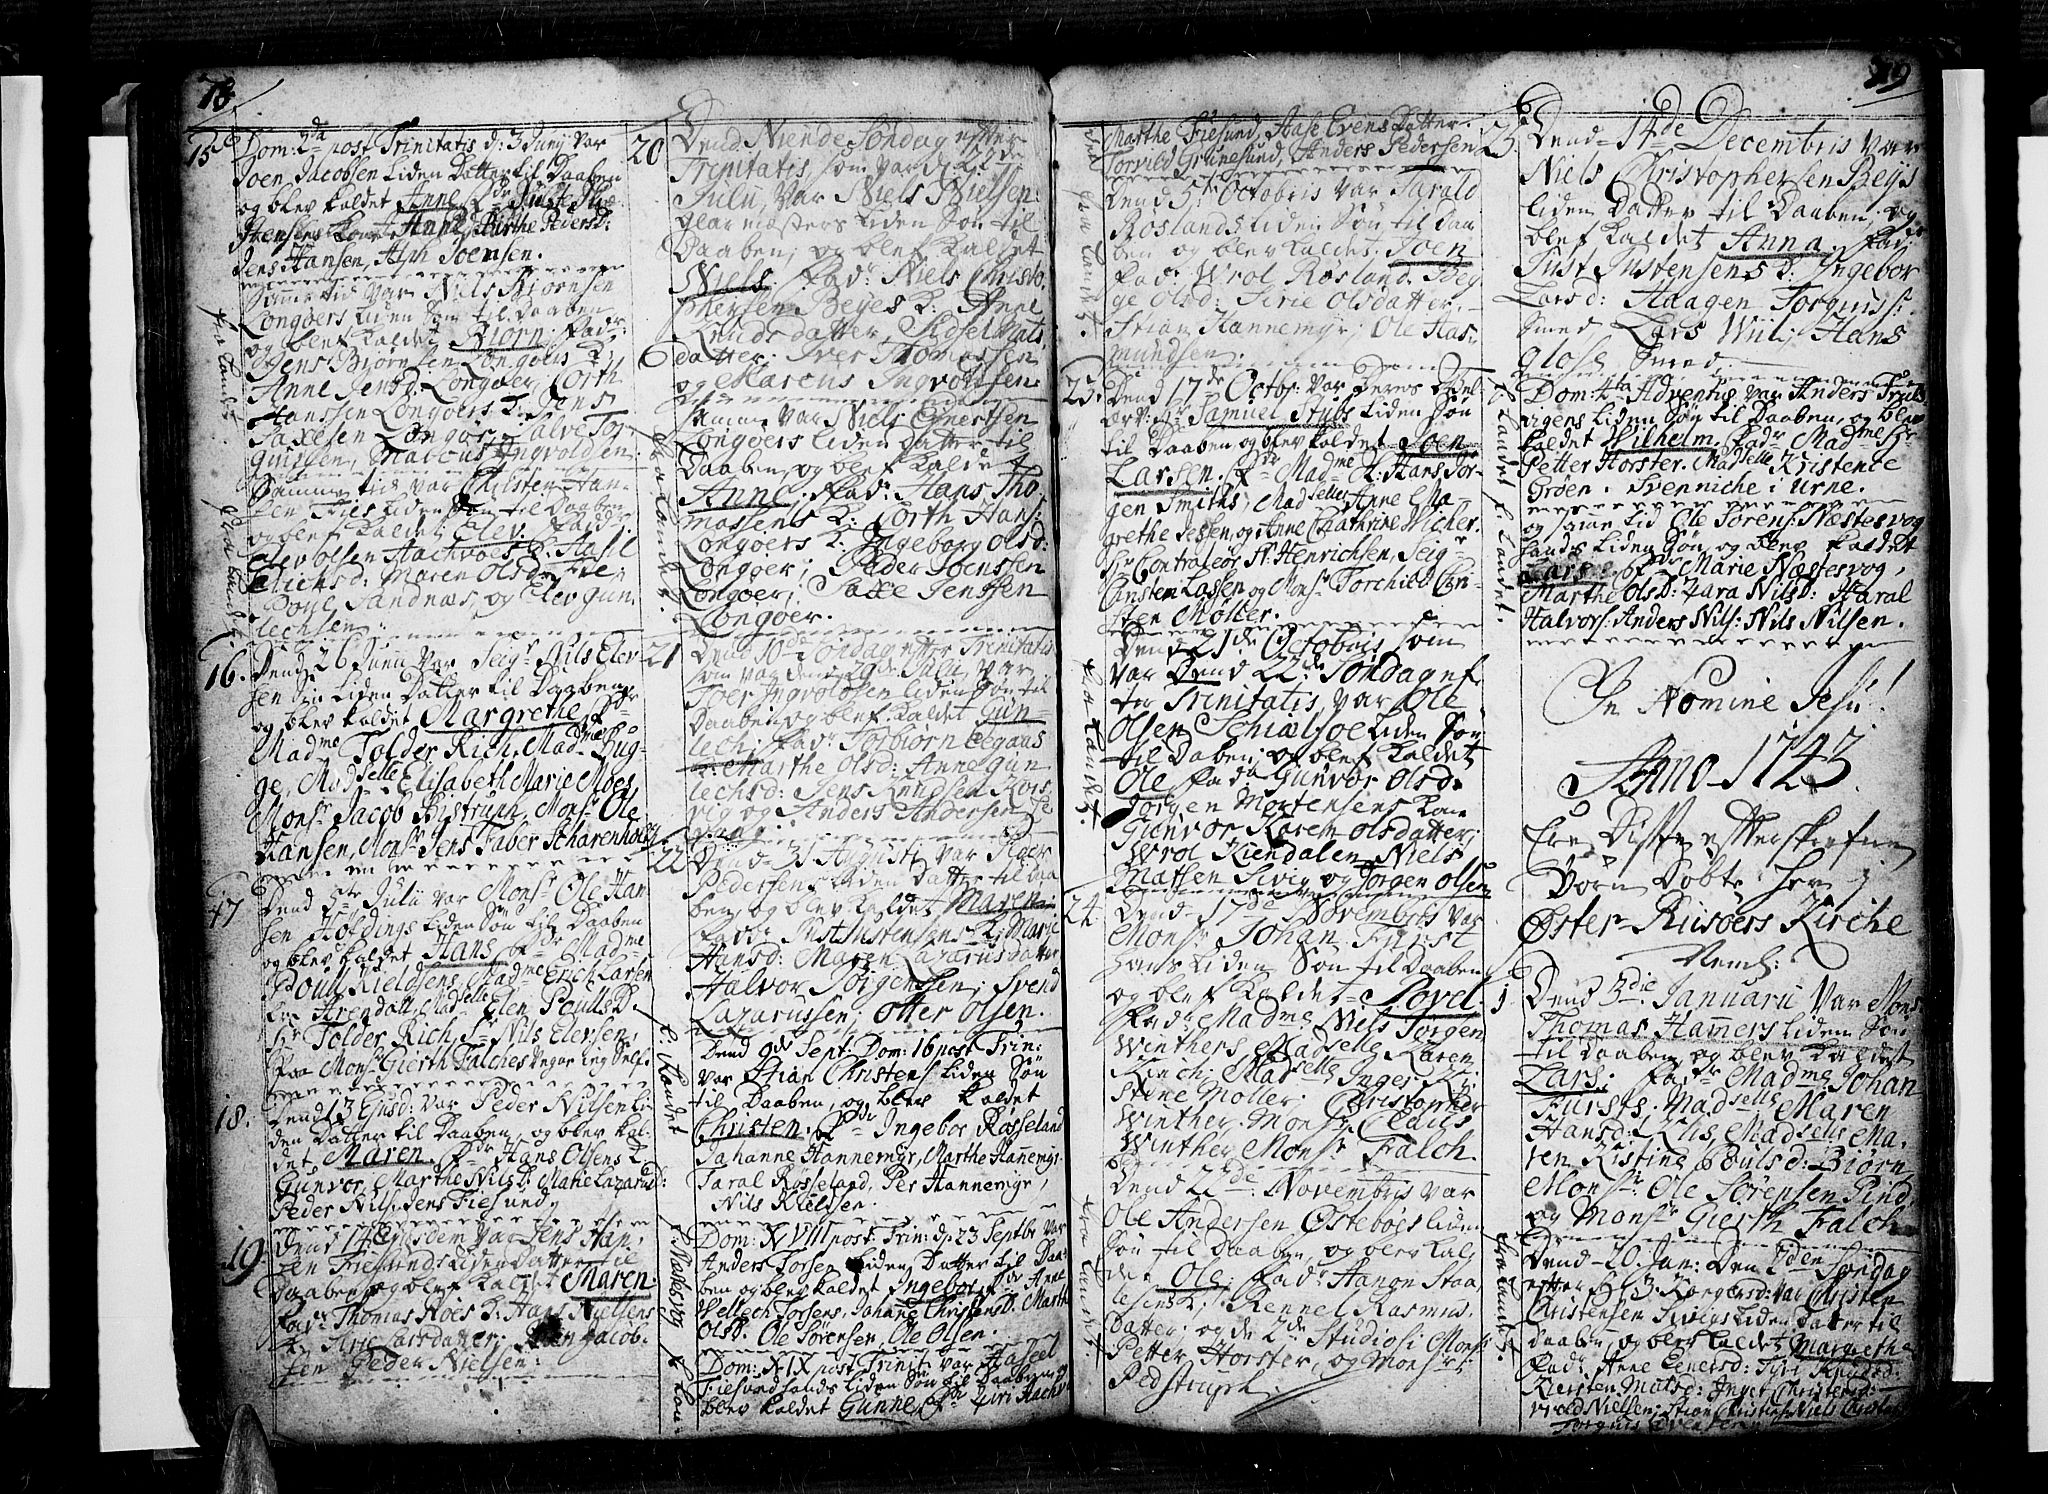 78
15 Dom: 2da post Trinitatis d: 3 Juny var
Joen Jacobsen liden Datter til Daaben
og blev kaldet Anne
Jens Hansen, Alph Joensen.
Same tid var Niels Biørnsen
Longøers liden Søn til Daaben
og blef kaldet Biørn. Fadr
Jens Biørnsen Longøers K:
Anne Jensd. Longøer, Corth
Hanssen Longøers K: Jens
Saxesen Longør, Salve Tor
gussen, Marcus Ingvoldsen
Samme tid var Christen Han
sen liden Søn til Daaben
og blef kaldet Elev. Fadr:
Elev Olsen Aachvoes K. Aasil
Erichsd: Maren Olsd
Sandnæs, og Elev Gun
lechsen
Fra Landet
16. Dend 26 Juni var Seigr Nils Elev
sen liden Datter til Daaben
og blev kaldet Margrethe
Madme Tolder Rich, Madme Bug
ge, Madselle Elisabeth Marie Moes
Monsr Jacob Bistrup, Monsr Ole
Hansen, Monsr Jens Faber Scharenholdt
17 Dend 5te Julii var Monsr Ole Han
sen Holdings liden Søn til Daaben
og blev kaldet Hans Madme
Poull Kieldsens, Madme Erich Larsen
fra Arendall, Madselle Elen Poulls D.
Hr Tolder Rich, Sr Nils Elevsen,
paa Monsr Gierth Falches vegne ieg Self.
18. Dend 13 Ejusd: var Peder Nilsen li
den Datter til Daaben, og blev kal
det Maren. Hans Olsens K.
Gunvor, Marthe Nils D. Marie Lazarusd:
Peder Nils: Jens Fiesund
19. Dend 14 Ejusdem var Jens Han
sen Fiesunds liden Datter til
Daaben og blef kaldet Maren.
Fadr Thomas Roes K. Hans Nielsens
K. Arie Larsdatter, Jacob
sen Peder Nielsen:
20 Dend Niende Søndag efter
Trinitatis, som var d. 22de
Julii, var Niels Nielsen
glarmesters liden Søn til
Daaben, og blef kaldet
Niels Fadr: Niels Christo
phersen Beyes K. Anne
Knudsdatter, Sidsel Mats
datter, Iver Thomassen
og Marcus Ingvoldsen
Samme var Niels Enertsen
Longøers liden Datter til
Daaben, og blef kaldet
Anne. Fadr: Hans Tho
massens K: Corth Hans:
Longøers K. Ingeborg Olsd:
Longøer; Peder Joenssen
Longøer; Saxe Jenssen
Longøer.
Fra Landet
21 Dend 10de Søndag efter Trinitatis
som var dend 29de Julii, var
Joer Ingvoldsen liden Søn til
Daaben og blef kaldet Gun
lech: Fadr Torbiørn Legans
K. Marthe Olsd: Anne Gun
lechsd: Jens Knudsen Rois
vig og Anders Andersen
22 Dend 3 Augusti var
Pedersens liden Datter til Daa
ben, og blev kaldet Maren
Fadr Just Justensens K. Marie
Hansd: Maren Lazarusdatter
Halvor Jørgenssen, Svend
Lazarussen, Otter Olsen.
F: Landet
Dend 9de Sept: Dom: 16 post Trin:
var Stian Christens: liden Søn
til Daaben, og blev kaldet
Christen. Ingebor Røsseland
Johanne Hannemyr, Marthe Hanemyr
Taral Røsseland, Per Hannemyr,
Nils Kieldsen.
Dom: XVIII post: Trin: d. 23 Septbr var
Anders Torsen liden Datter til Daa
ben og blev kaldet Ingebor Anne
Vellech Torsens, Johane Christens D. Marthe
Ols D. Ole Sørensen, Ole Olsen.
Dom: XIX post Trinit: var Haagel
Fiesundsands liden Søn til Daaben og
blev kaldet Gunne, Siri Aachvo
79
Marthe Fiesund, Aase Evens Datter
Torvild Grunesund, Anders Pedersen
Dend 5te Octobris var Tarald
Røslands liden Søn til Daa
ben og blev kaldet Joen
Fadr Wrol Røsland. Beg
ge Olsd: Sirie Olsdatter.
Stian Hannemyr, Ole Aas
mundsen.
Fra Landet
23. Dend 17de Octobr: var Deres Vel
ærv: Hr Samuel Stubs liden Søn
til Daaben og blev kaldet Joen
Larsen. Madme H. Hans Jør
gen Smiths, Madselles Anne Ma
grethe Jessen og Anne Cathrine Wicher
Hr Contraleør N. Henrichsen, Seigr
Christen Lassen og Monsr Torchild Chri
sten Møller.
Dend 21de Octobris som
var Dend 22de Søndag ef
ter Trinitatis, var Ole
Olsen Schielsøe liden Søn
til Daaben, og blef kaldet
Ole Fadr Gunvor Olsd.
Jørgen Mortensens Kone
Gunvor Karen Olsdatter,
Wrol Kiendalen Niels
Matsen Sivig og Jørgen Olsen
Fra Landet
24. Dend 17de Novembris var
Monsr Johan Fürst
hans liden Søn til Daaben
og blef kaldet Povel
Fadr Madme Niels Jørgen
Winthers Madselle Karen
Rinch, Madselle Inger Kir
stine Møller. Christopher
Winther. Monsr Claus
Winther Monsr Falch
Dend 22de Novembris var
Ole Andersen Østebøes liden
Søn til Daaben, og blev kal
det Ole. Fadr Hanon Staa
lesens K. Rennel Rasmus
Datter, og de 2de Studiosi Monsr
Petter Horster, og Monsr
Pedstrup.
Fra Landet
25. Dend 14de Decembris var
Niels Christophersen Beys
liden Datter til Daaben, og
blef kaldet Anna. Fadr
Just Justensens K. Ingebor
Larsd: Haagen Torguss:
Smed Lars Will, Hans
gløse Smed
Dom: 4ta Adventus var Anders Truls
vigens liden Søn til Daaben, og blev
kaldet Wilhelm. Fadr Madme Hr
Petter Horster. Madselle Kristence
Grøen. Svenniche i Urne.
og same tid Ole Sørens: Næstesvog
sands liden Søn og blev kaldet
Lars Marie Næstesvog,
Marthe Olsd: Zara Nilsd: Haral
Halvors: Anders Nils: Nils Nilsen.
F. Landet F. Landet.
In Nomine Jesu!
Anno 1743
Ere Disse efterskrefne
Børn Døbte her i
Øster Riisøers Kirche
Neml:
1. Dend 3die Januarii var Mons
Thomas Hamers liden Søn
til Daaben, og blev kaldet
Lars. Fadr Madme Johan
Fürsts. Madselle Maren
Hansd: Riis, Madselle Ma
ren Kistine Poulsd: Biørn
Monsr Ole Sørensen Pind
og Monsr Gierth Falch
Dend 20. Jan: Den 2den Søndag
efter H. 3. Kongersd: var Christen
Christensen Sivigs liden Datter til
Daaben, og blev kaldet Margrethe
Fadr Anne Enersd: Siri Knudsd:
Kiersten Matsd: Inger Christensd:
Wrold Nielsen, Stian Christens: Niels Christens
Torgius Evensen
Fra Landet.